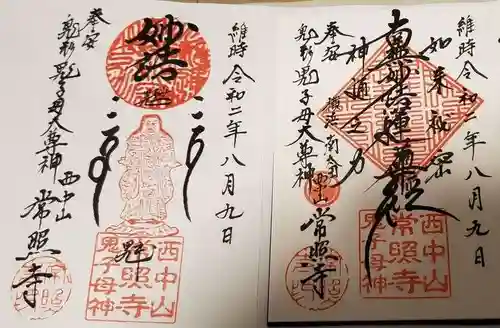 維時 令和二年八月九日
南無妙法蓮華経
如来秘密
神通之力
奉安
鬼形鬼子母大尊神
西中山 常照寺
西中山
常照寺
鬼子母神
維時 令和二年八月九日
妙法
奉安
鬼形鬼子母大尊神
西中山
常照寺
西中山
常照寺
鬼子母神